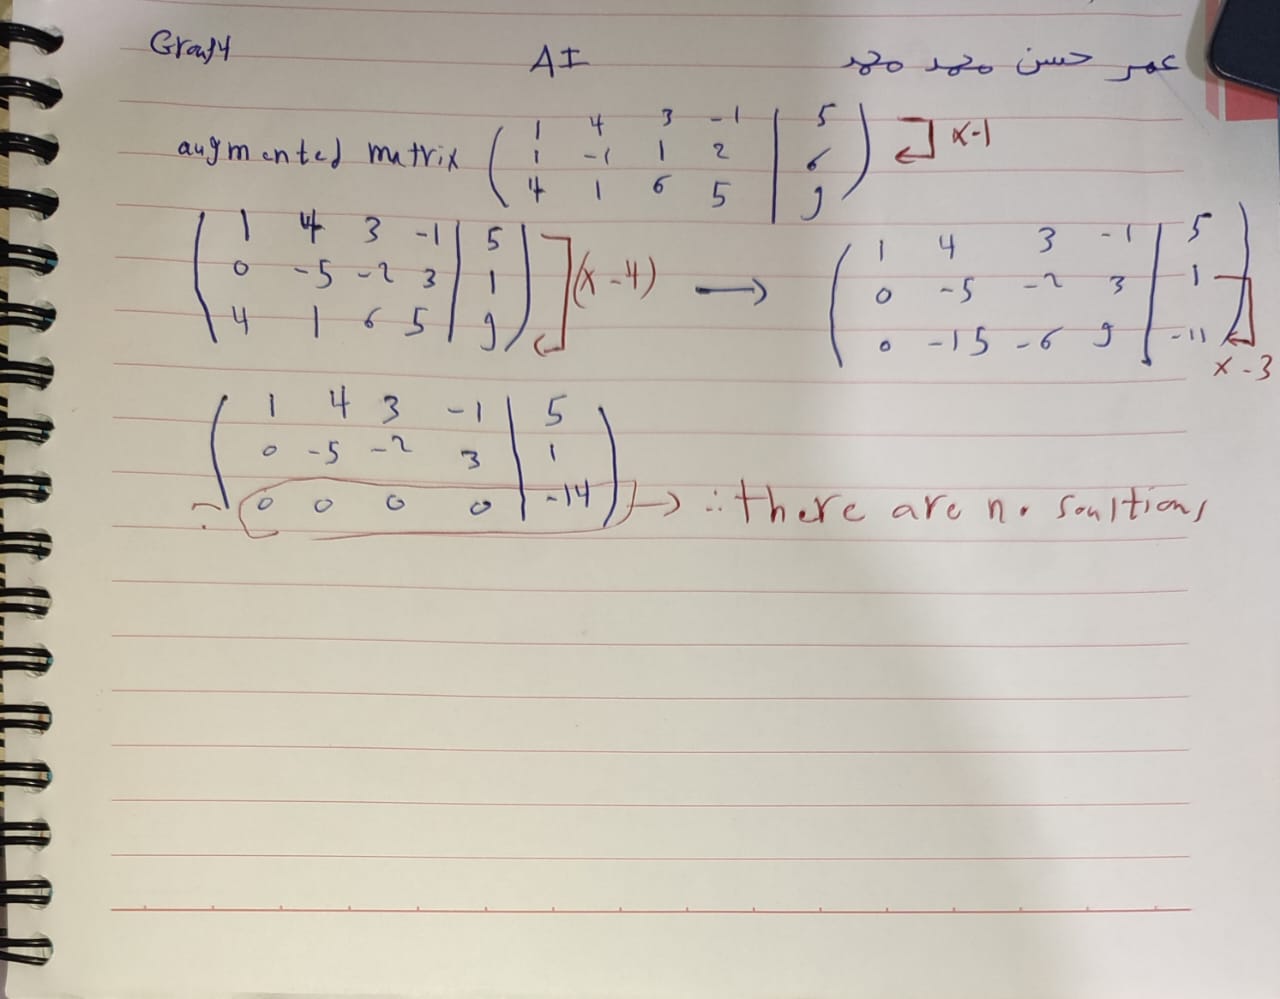 Group4 AI عمر حسن محمد محمد
augmented matrix ( 1 4 3 -1 | 5 ) x-1
1 -1 1 2 | 6
4 1 6 5 | 9
( 1 4 3 -1 | 5 ) (x-4) → ( 1 4 3 -1 | 5 )
0 -5 -2 3 | 1 0 -5 -2 3 | 1
4 1 6 5 | 9 0 -15 -6 9 | -11 x-3
( 1 4 3 -1 | 5 )
0 -5 -2 3 | 1
0 0 0 0 | -14 → ∴ there are no soultions